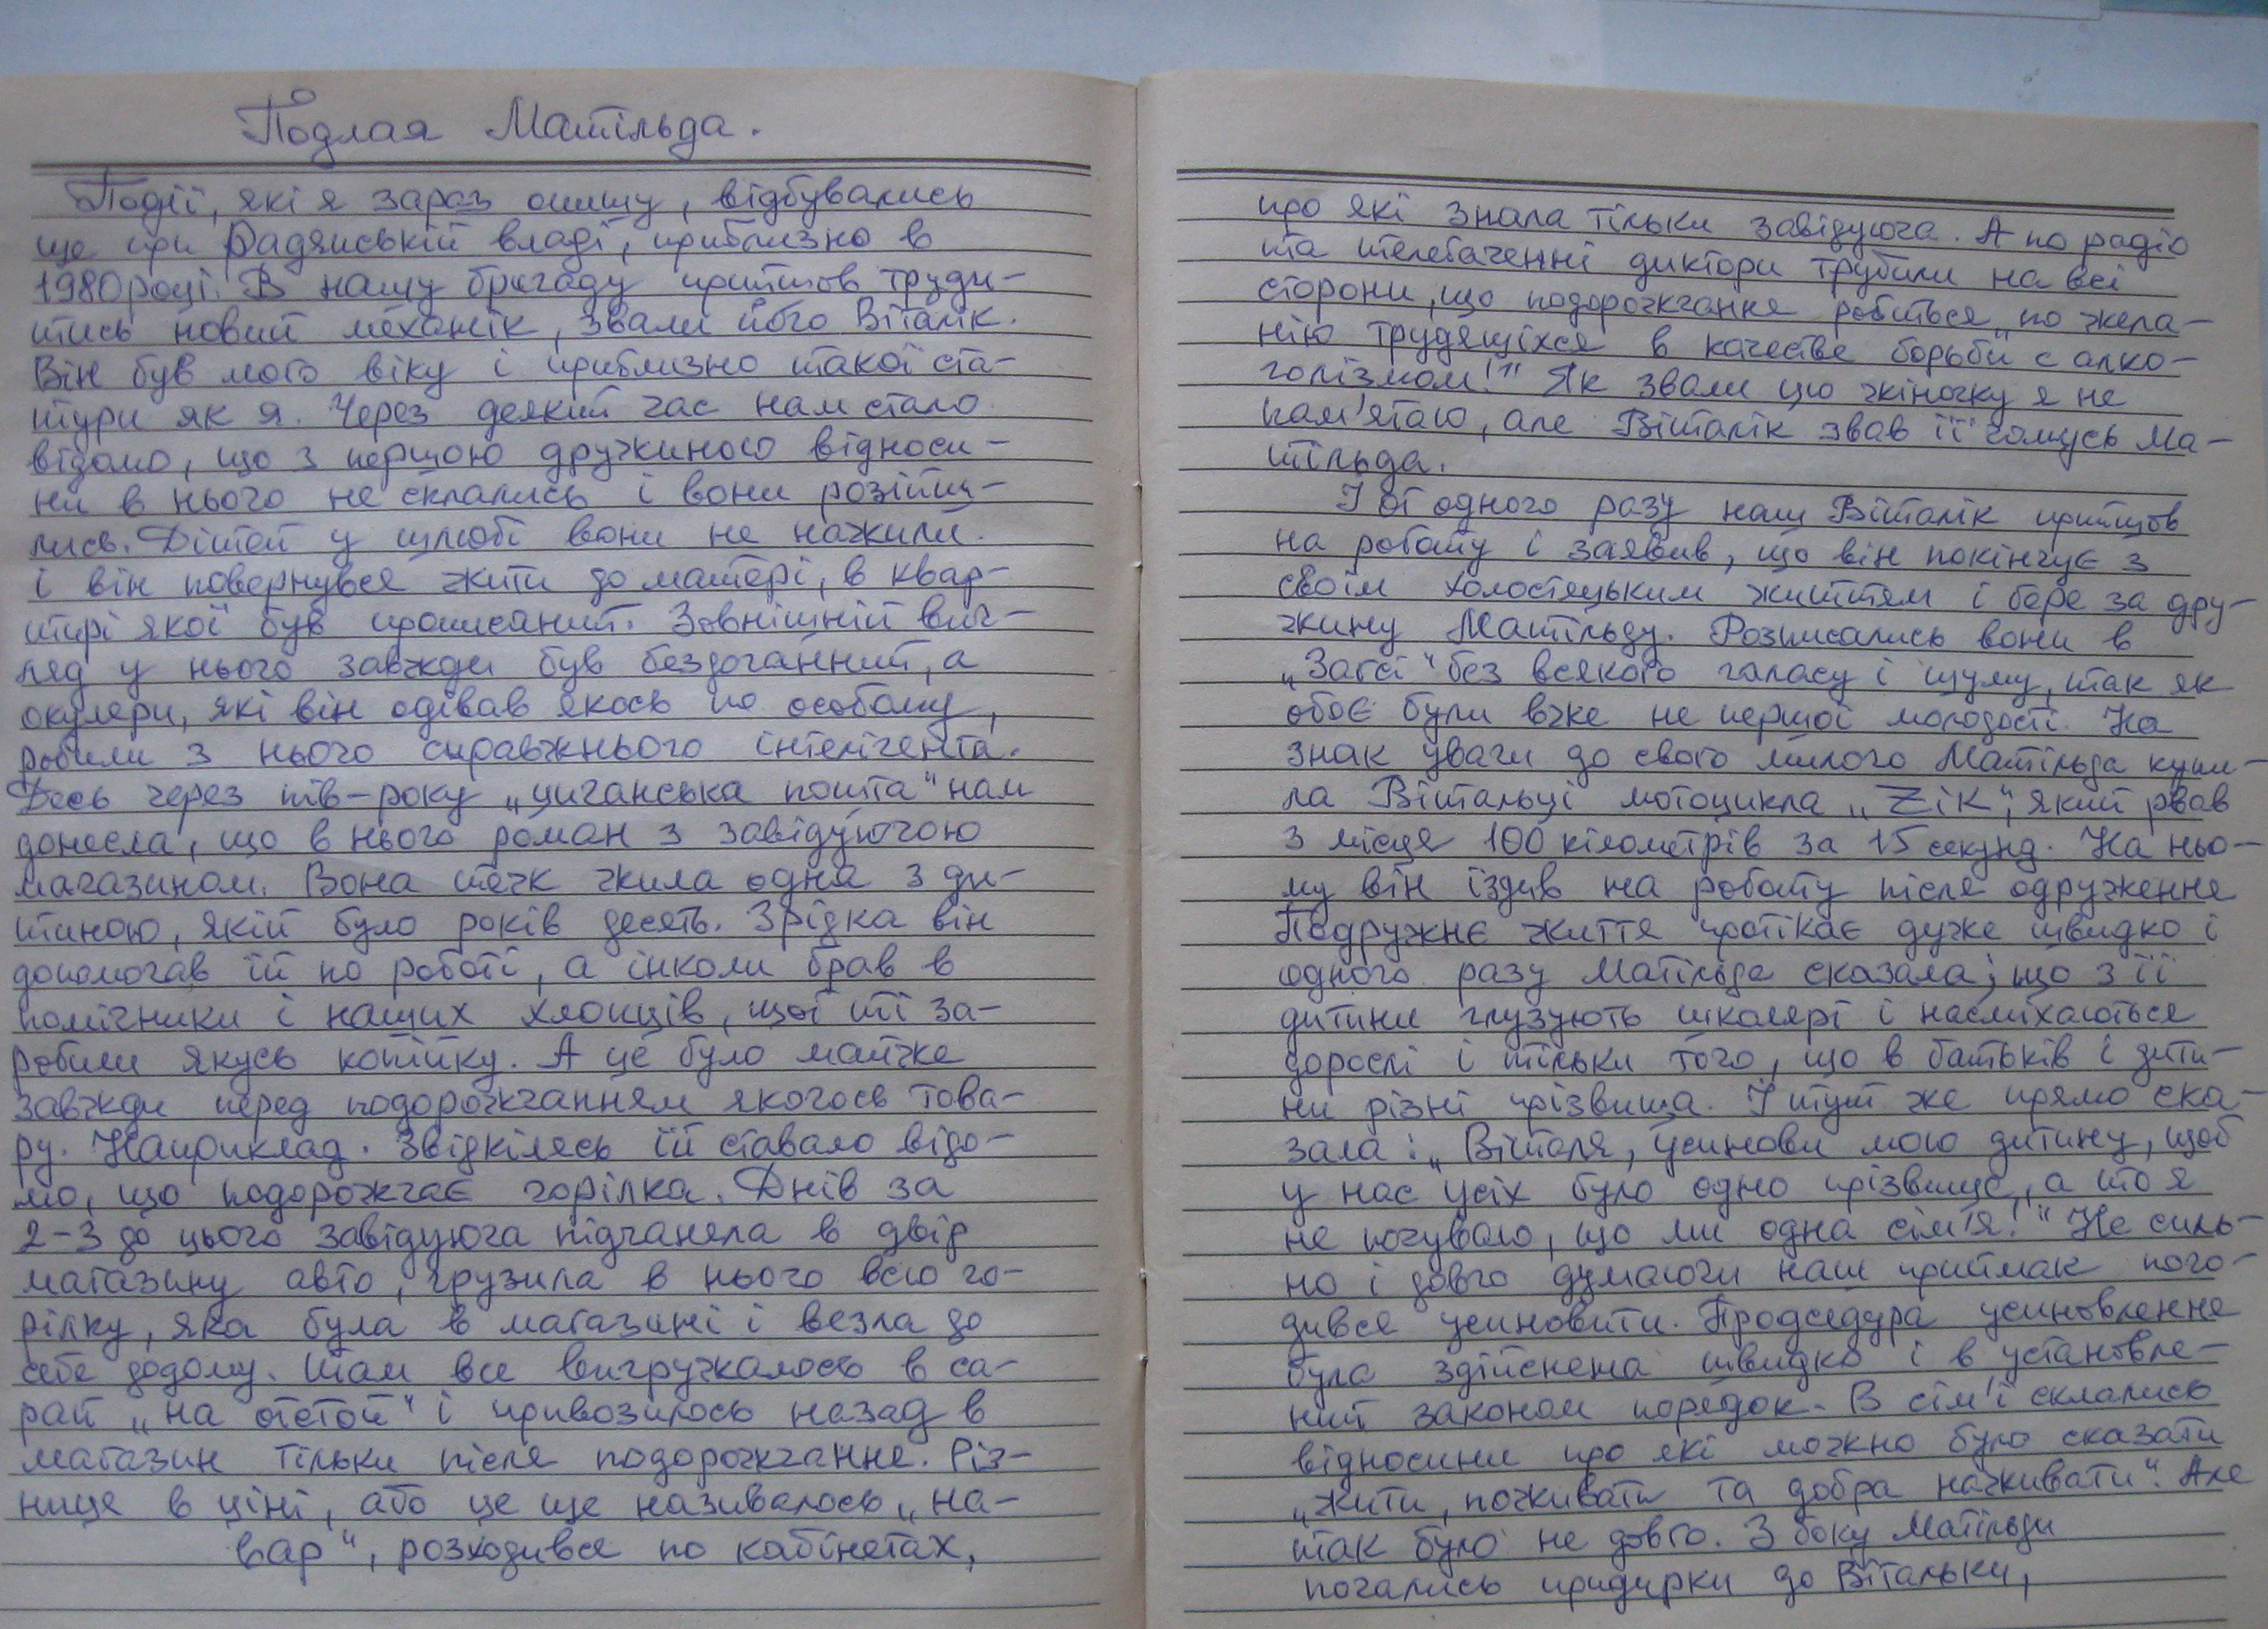 Подлая Матільда.
Події, які я зараз опишу, відбувались
ще при Радянській владі, приблизно в
1980 році. В нашу бригаду прийшов труди-
тись новий механік, звали його Віталік.
Він був мого віку і приблизно такої ста-
тури як я. Через деякий час нам стало
відомо, що з першою дружиною відноси-
ни в нього не склались і вони розійш-
лись. Дітей у шлюбі вони не нажили
і він повернувся жити до матері, в квар-
тирі якої був прописаний. Зовнішній виг-
ляд у нього завжди був бездоганний, а
окуляри, які він одівав якось по особому,
робили з нього справжнього інтелігента.
Десь через пів-року „циганська пошта" нам
донесла, що в нього роман з завідуючою
магазином. Вона теж жила одна з ди-
тиною, якій було років десять. Зрідка він
допомогав їй по роботі, а інколи брав в
помічники і наших хлопців, щоі ті за-
робили якусь копійку. А це було майже
завжди перед подорожчанням якогось това-
ру. Наприклад. Звідкілясь їй ставало відо-
мо, що подорожчає горілка. Днів за
2-3 до цього завідуюча підганяла в двір
магазину авто, грузила в нього всю го-
рілку, яка була в магазині і везла до
себе додому. Там все вигружалось в са-
рай „на отстой" і привозилось назад в
магазин тільки після подорожчання. Різ-
ниця в ціні, або це ще називалось „на-
вар", розходився по кабінетах,
про які знала тільки завідуюча. А по радіо
та телебаченні диктори трубили на всі
сторони, що подорожчання робиться „по жела-
нію трудящіхся в качестве борьби с алко-
голізмом!" Як звали цю жіночку я не
пам'ятаю, але Віталік звав її чомусь Ма-
тільда.
І от одного разу наш Віталік прийшов
на роботу і заявив, що він покінчує з
своїм холостяцьким життям і бере за дру-
жину Матільду. Розписались вони в
„Загсі" без всякого галасу і шуму, так як
обоє були вже не першої молодості. На
знак уваги до свого милого Матільда купи-
ла Вітальці мотоцикла „Zік", який рвав
з місця 100 кілометрів за 15 секунд. На ньо-
му він їздив на роботу після одруження
Подружнє життя протікає дуже швидко і
одного разу Матільда сказала, що з її
дитини глузують школярі і насміхаються
дорослі і тільки того, що в батьків і дити-
ни різні прізвища. І тут же прямо ска-
зала: „Віталя, усинови мою дитину, щоб
у нас усіх було одно прізвище, а то я
не почуваю, що ми одна сім'я!" Не силь-
но і довго думаючи наш приймак пого-
дився усиновити. Продседура усиновлення
була здійснена швидко і в установле-
ний законом порядок. В сім'ї склались
відносини про які можно було сказати
„жити, поживати та добра наживати". Але
так було не довго. З боку Матільди
почались придирки до Вітальки,